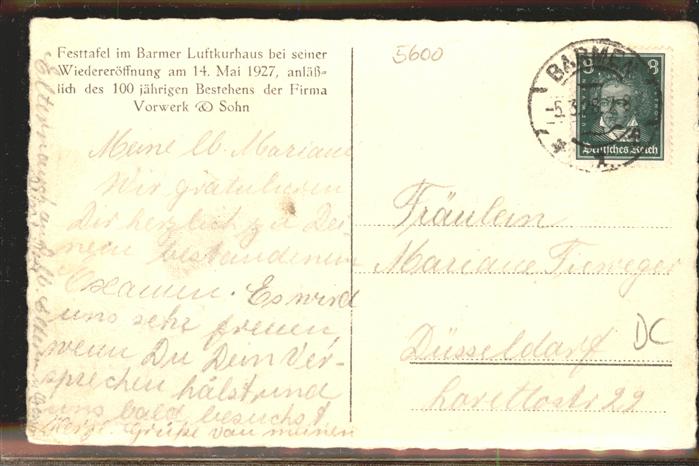 Festtafel im Barmer Luftkurhaus bei seiner
Wiedereröffnung am 14. Mai 1927, anläß-
lich des 100 jährigen Bestehens der Firma
Vorwerk & Sohn
5600
BARMEN
8
Deutsches Reich
Meine lb. Mariane
Wir gratulieren
Dir herzlich zu Dei-
nem bestandenen
Examen. Es wird
uns sehr freuen,
wenn Du Dein Ver-
sprechen hälst und
uns bald besuchst
Herzl. Grüße von meinen
Fräulein
Mariane Tieweger
Düsseldorf
DC
Lorettostr 22